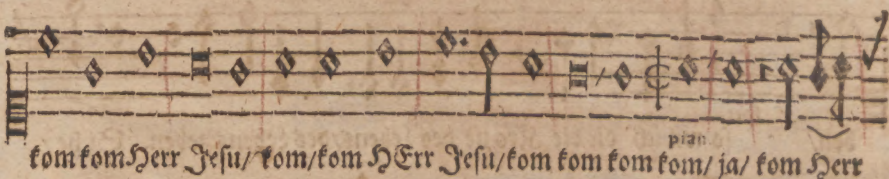 pian.
kom kom Herr Jesu/ kom/ kom HErr Jesu/ kom kom kom kom/ ja/ kom Herr